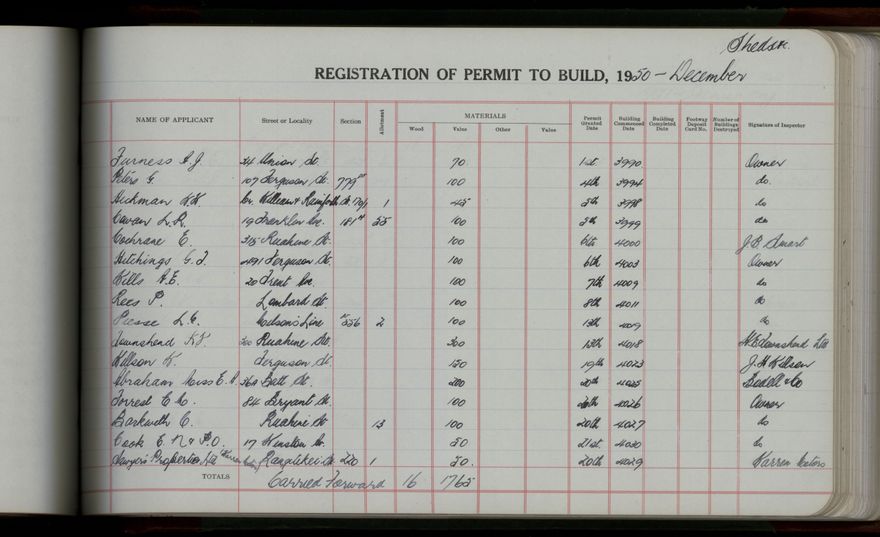 Sheds &c.
REGISTRATION OF PERMIT TO BUILD, 1950 - December
NAME OF APPLICANT Street or Locality Section Allotment MATERIALS Permit Granted Date Building Commenced Date Building Completed Date Footway Deposit Card No. Number of Buildings Destroyed Signature of Inspector
Wood Value Other Value
Furness A.J. 34 Union St. 70 1st 3990 Owner
Peters G. 107 Ferguson St. 779 100 4th 3994 do.
Hickman 1 45 5th 3998 do
Cowan L.R. 19 Franklin Ave. 181 25 100 5th 3999 do
Cochrane E. 315 Ruahine St. 100 6th 4000 J.B. Smart
Hitchings G.J. 491 Ferguson St. 100 6th 4003 Owner
Hills A.E. 20 Trent Ave. 100 7th 4009 do
Rees P. Lombard St. 100 8th 4011 do
Pierse L.G. Line 556 2 100 13th do
Townshend Ruahine St. 300 13th 4018 Townshend Ltd
Willson K. Ferguson St. 150 19th 4023 J.H. Willson
Abraham Miss E. Batt St. 200 20th 4025 Bedell & Co
Forrest 84 Bryant St. 100 20th 4026 Owner
Barkwith C. Ruahine St 13 100 20th 4027 do
Cook E.N. & P.O. 17 Winston Av. 50 21st 4020 do
Properties Ltd Rangitikei St. 220 1 50. 20th 4029 Warren Motors
TOTALS Carried Forward 16 1765